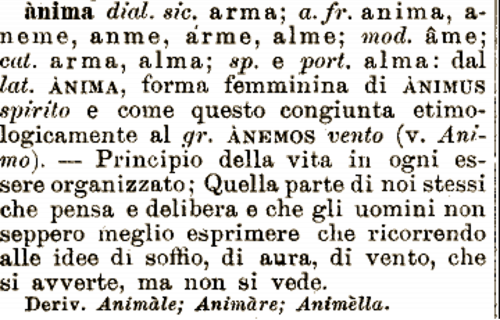 ànima dial. sic. arma; a.fr. anima, a-
neme, anme, arme, alme; mod. âme;
cat. arma, alma; sp. e port. alma: dal
lat. ÀNIMA, forma femminina di ÀNIMUS
spirito e come questo congiunta etimo-
logicamente al gr. ÀNEMOS vento (v. Ani-
mo). — Principio della vita in ogni es-
sere organizzato; Quella parte di noi stessi
che pensa e delibera e che gli uomini non
seppero meglio esprimere che ricorrendo
alle idee di soffio, di aura, di vento, che
si avverte, ma non si vede.
Deriv. Animàle; Animàre; Animèlla.